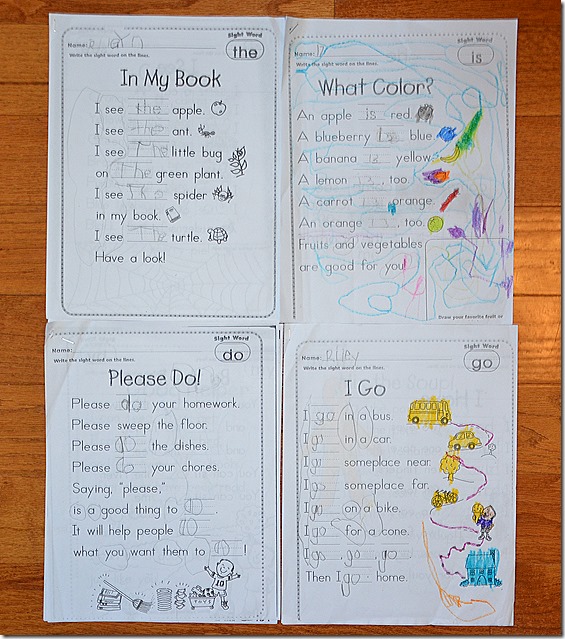 Sight Word
Name:
the
Write the sight word on the lines.
In My Book
I see the apple.
I see the ant.
I see The little bug
on The green plant.
I see The spider
in my book.
I see The turtle.
Have a look!
Sight Word
Name:
is
Write the sight word on the lines.
What Color?
An apple is red.
A blueberry is blue.
A banana is yellow.
A lemon is, too.
A carrot is orange.
An orange is, too.
Fruits and vegetables
are good for you!
Draw your favorite fruit or
Sight Word
Name:
do
Write the sight word on the lines.
Please Do!
Please do your homework.
Please sweep the floor.
Please do the dishes.
Please do your chores.
Saying, "please,"
is a good thing to do.
It will help people do
what you want them to do!
TOYS
Sight Word
Name:
go
Write the sight word on the lines.
I Go
I go in a bus.
I go in a car.
I go someplace near.
I go someplace far.
I go on a bike.
I go for a cone.
I go, go, go
Then I go home.